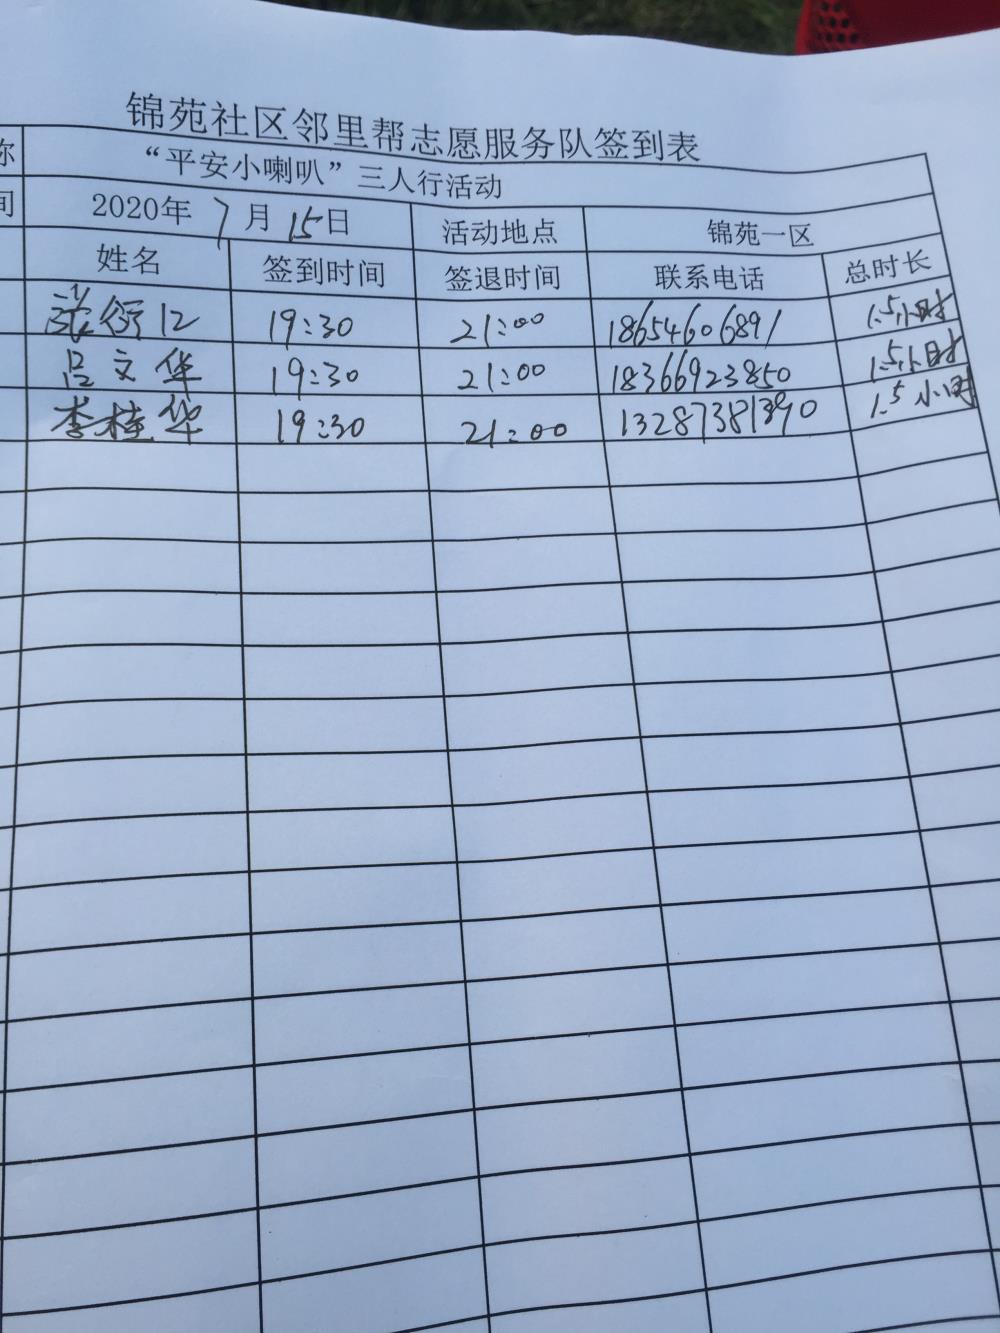 锦苑社区邻里帮志愿服务队签到表
称 “平安小喇叭”三人行活动
间 2020年 7月 15日 活动地点 锦苑一区
姓名 签到时间 签退时间 联系电话 总时长
19:30 21:00 18654606891 1.5小时
吕文华 19:30 21:00 18366923850 1.5小时
李桂华 19:30 21:00 13287381390 1.5小时